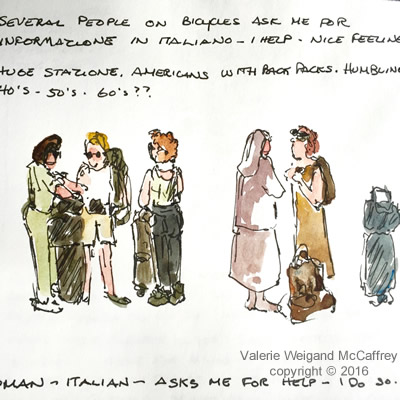 SEVERAL PEOPLE ON BICYCLES ASK ME FOR
INFORMAZIONE IN ITALIANO - I HELP - NICE FEELING
HUGE STAZIONE. AMERICANS WITH BACK PACKS. HUMBLING
40's - 50's - 60's??
Valerie Weigand McCaffrey
copyright © 2016
OMAN - ITALIAN - ASKS ME FOR HELP - I DO SO.